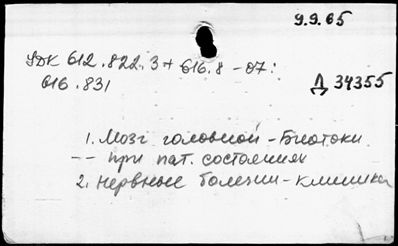 9.9.65
УДК 612.822.3 + 616.8-07:
616.831
Д 34355
1. Мозг головной - Биотоки
-- при пат. состояниях
2. Нервные болезни - клиника